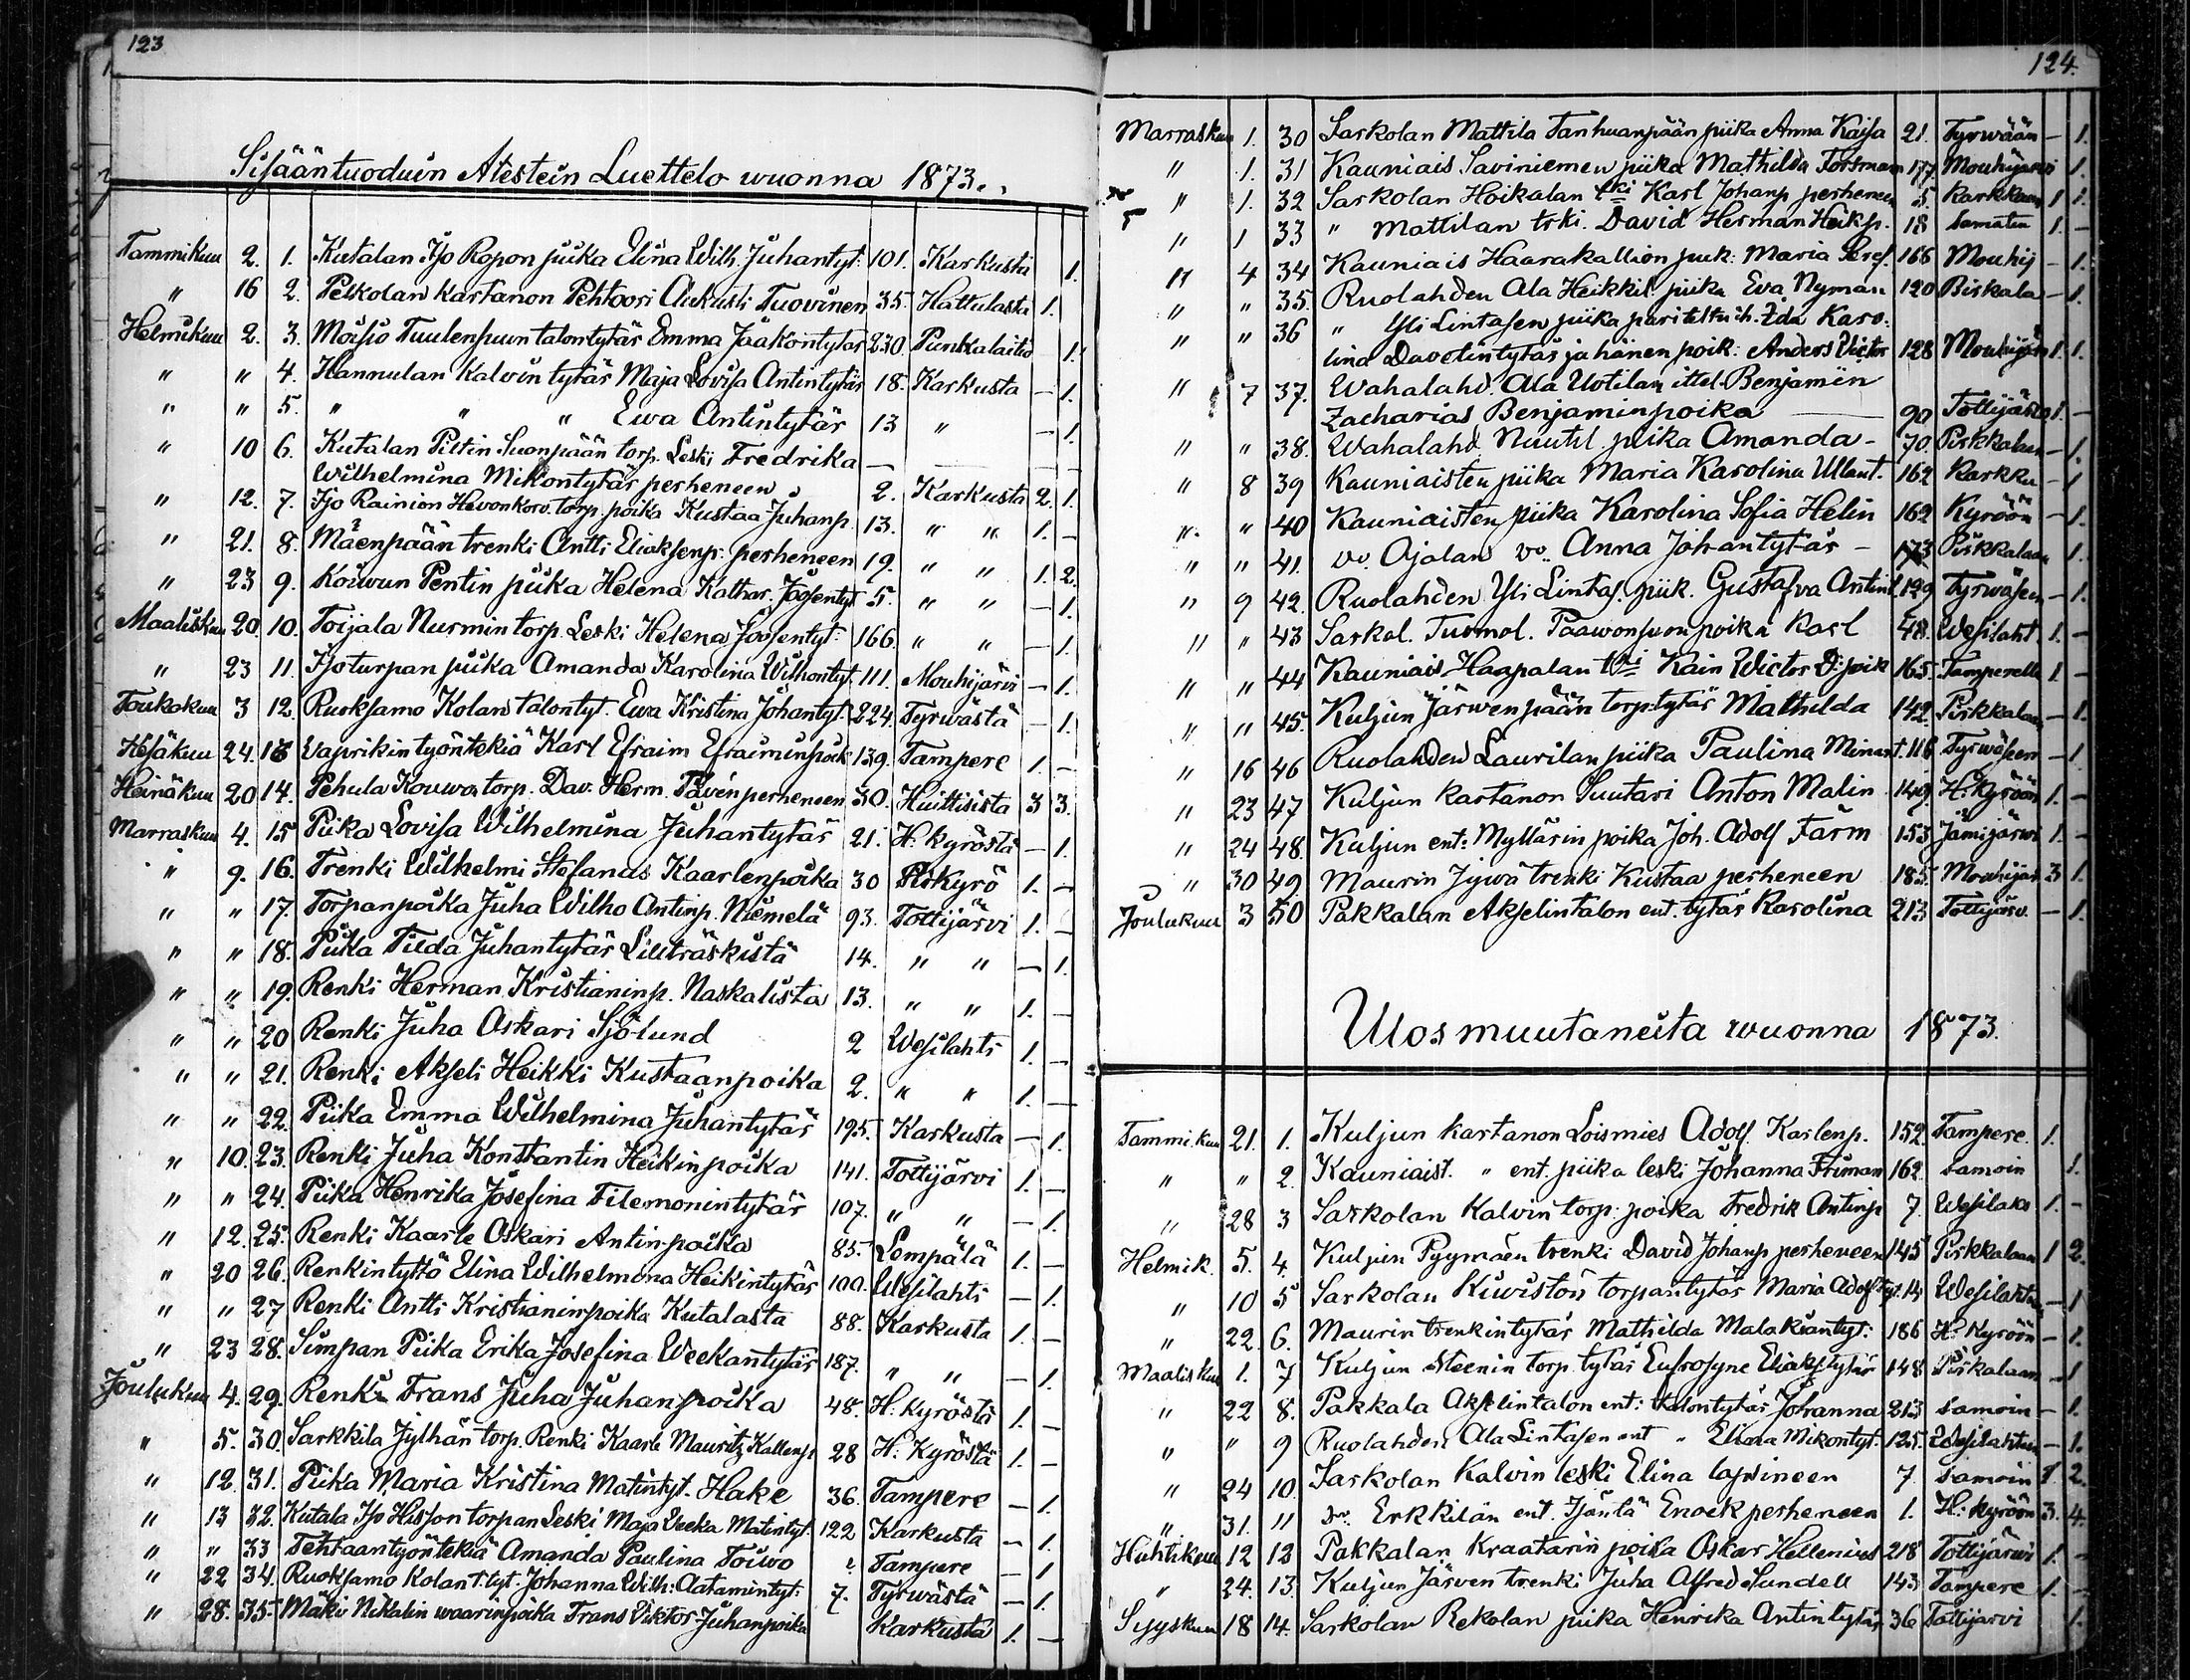 123
Sisääntuoduin Atestein Luettelo wuonna 1873.
Tammikuu 2. 1. Kutalan Iso Ropon piika Elina Wilh. Juhantyt. 101. Karkusta 1.
" 16 2. Pelkolan Kartanon Pehtoori Aukusti Tuovinen 35. Hattulasta 1.
Helmikuu 2. 3. Moisio Tuulensuun talontytär Emma Jaakontytär 230 Punkalaitio 1.
" " 4. Hannulan Kalvin tytär Maja Lovisa Antintytär 18. Karkusta — 1.
" " 5. " " " Ewa Antintytär 13 " — 1.
" 10 6. Kutalan Piltin Suonpään torp. Leski Fredrika
Wilhelmina Mikontytär perheneen 2. Karkusta 2. 1.
" 12. 7. Iso Rainion Hevonkorv. torp. poika Kustaa Juhanp. 13. " " 1. —
" 21. 8. Mäenpään trenki Antti Eliaksenp. perheneen 19. " " 1. 2.
" 23 9. Koiwun Pentin piika Helena Kathar. Joosentyt 5. " " — 1.
Maaliskuu 20 10. Toijala Nurmin torp. Leski Helena Joosentyt. 166. " " — 1.
" 23 11. Isoturpan piika Amanda Karolina Wilhontyt. 111. Mouhijärvi — 1.
Toukokuu 3 12. Ruoksamo Kolan talontyt. Ewa Kristina Johantyt. 224. Tyrwästä — 1.
Kesäkuu 24. 13 Vaprikin työntekiä Karl Efraim Efraiminpoik 139. Tampere 1. —
Heinäkuu 20 14. Pehula Kouwon torp. Dav. Herm. perheneen 30. Huittisista 3 3.
Marraskuu 4. 15 Piika Lovisa Wilhelmina Juhantytär 21. H. kyröstä — 1.
" 9. 16. Trenki Wilhelmi Stefanas Kaarlenpoika 30 1. —
" " 17. Torpanpoika Juha Wilho Antinp. Niemelä 93. Tottijärvi 1. —
" " 18. Piika Tilda Juhantytär Lilliträskistä 14. " " — 1.
" " 19. Renki Herman Kristianinp. Naskalista 13. " " 1. —
" " 20 Renki Juha Oskari Sjölund 2 Wesilahti 1. —
" " 21. Renki Akseli Heikki Kustaanpoika 2. " " 1. —
" " 22. Piika Emma Wilhelmina Juhantytär 195. Karkusta — 1.
" 10. 23. Renki Juha Konstantin Heikinpoika 141. Tottijärvi 1. —
" " 24. Piika Henrika Josefina Filemonintytär 107. " " — 1.
" 12. 25. Renki Kaarle Oskari Antinpoika 85. Lempälä 1. —
" 20 26. Renkintyttö Elina Wilhelmina Heikintytär 100. Wesilahti — 1.
" " 27 Renki Antti Kristianinpoika Kutalasta 88. Karkusta 1. —
" 23 28. Simpan Piika Erika Josefina Weekantytär 187. " " — 1.
Joulukuu 4. 29. Renki Frans Juha Juhanpoika 48. H. kyröstä 1. —
" 5. 30. Sarkkila Jylhän torp. Renki Kaarle Mauritz Kallenp. 28 H: Kyröstä 1. —
" 12. 31. Piika Maria Kristina Matintyt. Hake 36. Tampere — 1.
" 13 32. Kutala Iso Hisson torpan Leski Maja Veeka Matintyt. 122 Karkusta — 1.
" " 33 Tehtaantyöntekiä Amanda Paulina Toiwo " Tampere — 1.
" 22 34. Ruoksamo Kolan t. tyt. Johanna Wilh. Aatamintyt. 7. Tyrwästä — 1.
" 28. 35. Mäki Nikalin waarinpoika Frans Viktor Juhanpoika Karkusta 1. —
124.
Marraskuu 1. 30 Sarkolan Mattila Tanhuanpään piika Anna Kaisa 21. Tyrwään — 1.
" 1. 31 Kauniais Saviniemen piika Mathilda Forsman 177. Mouhijärvi 1.
" 1. 32 Sarkolan Hoikalan tki Karl Johanp perheneen 5. Karkkuun 1 1.
" 1 33 " Mattilan trki. David Herman Heiksp. 18 samaten 1. —
" 4 34 Kauniais Haarakallion piik: Maria Seref. 166 Mouhij — 1.
" " 35. Ruolahden Ala Heikkil. piika Eva Nyman 120 Birkala — 1.
" " 36 " Yli Lintasen piika pariteltu ih. Ida Karo.
lina Davidintytär ja hänen poik: Anders Victor 128 Mouhijär 1. 1.
" 7 37. Wahalahd. Ala Uotilan ittel. Benjamin
Zacharias Benjaminpoika 90 Tottijärv 1. —
" " 38. Wahalahd. Nuutil. piika Amanda — 70. Pirkkalaan — 1.
" 8 39 Kauniaisten piika Maria Karolina Ullant. 162 Karkku — 1
" " 40 Kauniaisten piika Karolina Sofia Helin 162 Kyröön — 1.
" " 41. vo. Ojalan vo. Anna Johantytär — 173 Pirkkalaan 1.
" 9 42. Ruolahden Yli Lintas. piik. Gustafva Antint. 129 Tyrwäseen — 1.
" " 43 Sarkol. Tuomol. Paawonsuon poika Karl 48. Wesilaht 1. —
" " 44 Kauniais Haapalan tki Kain Wictor D:poik 165. Tamperelle 1. —
" " 45. Kuljun Järwenpään torp.tytär Mathilda 142. Pirkkalaan — 1.
" 16 46 Ruolahden Laurilan piika Paulina Minart. 118 Tyrwäsen — 1
" 23 47 Kuljun kartanon Suutari Anton Malin 149 H. Kyröön 1. —
" 24 48. Kuljun ent: Myllärin poika Joh. Adolf Färm 153 Jämijärwi 1. —
" 30 49 Maurin Jywä trenki Kustaa perheneen 185. Mouhijär 3 1.
Joulukuu 3 50 Pakkalan Akselintalon ent. tytär Karolina 213 Tottijärv. — 1.
Ulosmuutaneita wuonna 1873.
Tammi.kuu 21. 1. Kuljun kartanon Loismies Adolf Karlenp. 152. Tampere. 1.
" " 2. Kauniaist. " ent. piika leski Johanna Friman 162. samoin 1.
" 28 3 Sarkolan Kalvin torp. poika Fredrik Antinp 7. Wesilaks 1. —
Helmik. 5. 4. Kuljun Pyymäen trenki David Johanp perheneen 145 Pirkkalaan 1 2.
" 10 5 Sarkolan Kiwistön torpantytär Maria Adolfstyt. 14 Wesilahten — 1
" 22. 6. Maurin trenkintytär Mathilda Malakiantyt: 186 H: Kyröön — 1.
Maaliskuu 1. 7 Kuljun Steenin torp. tytär Eufrosyne Eliakstytär 148 Pirkalaan — 1
" 22 8. Pakkala Akselintalon ent: talontytär Johanna 213 samoin — 1.
" " 9 Ruolahden Ala Lintasen ent " Eliina Mikontyt. 125. Wesilahten — 1.
" 24 10. Sarkolan Kalvin leski Elina lapsineen 7. samoin 1 2.
" 31. 11 Do. Erkkilän ent. Isäntä Enock perheneen 1. H. kyröön 3. 4.
Huhtikuu 12 12 Pakkalan Kraatarin poika Oskar Hellenius 218 Tottijärwi 1. —
" 24. 13. Kuljun Järven trenki Juha Alfred Sundell 143 Tampere 1. —
Syyskuu 18 14. Sarkolan Rekolan piika Henrika Antintytär 36 Tottijarvi 1.